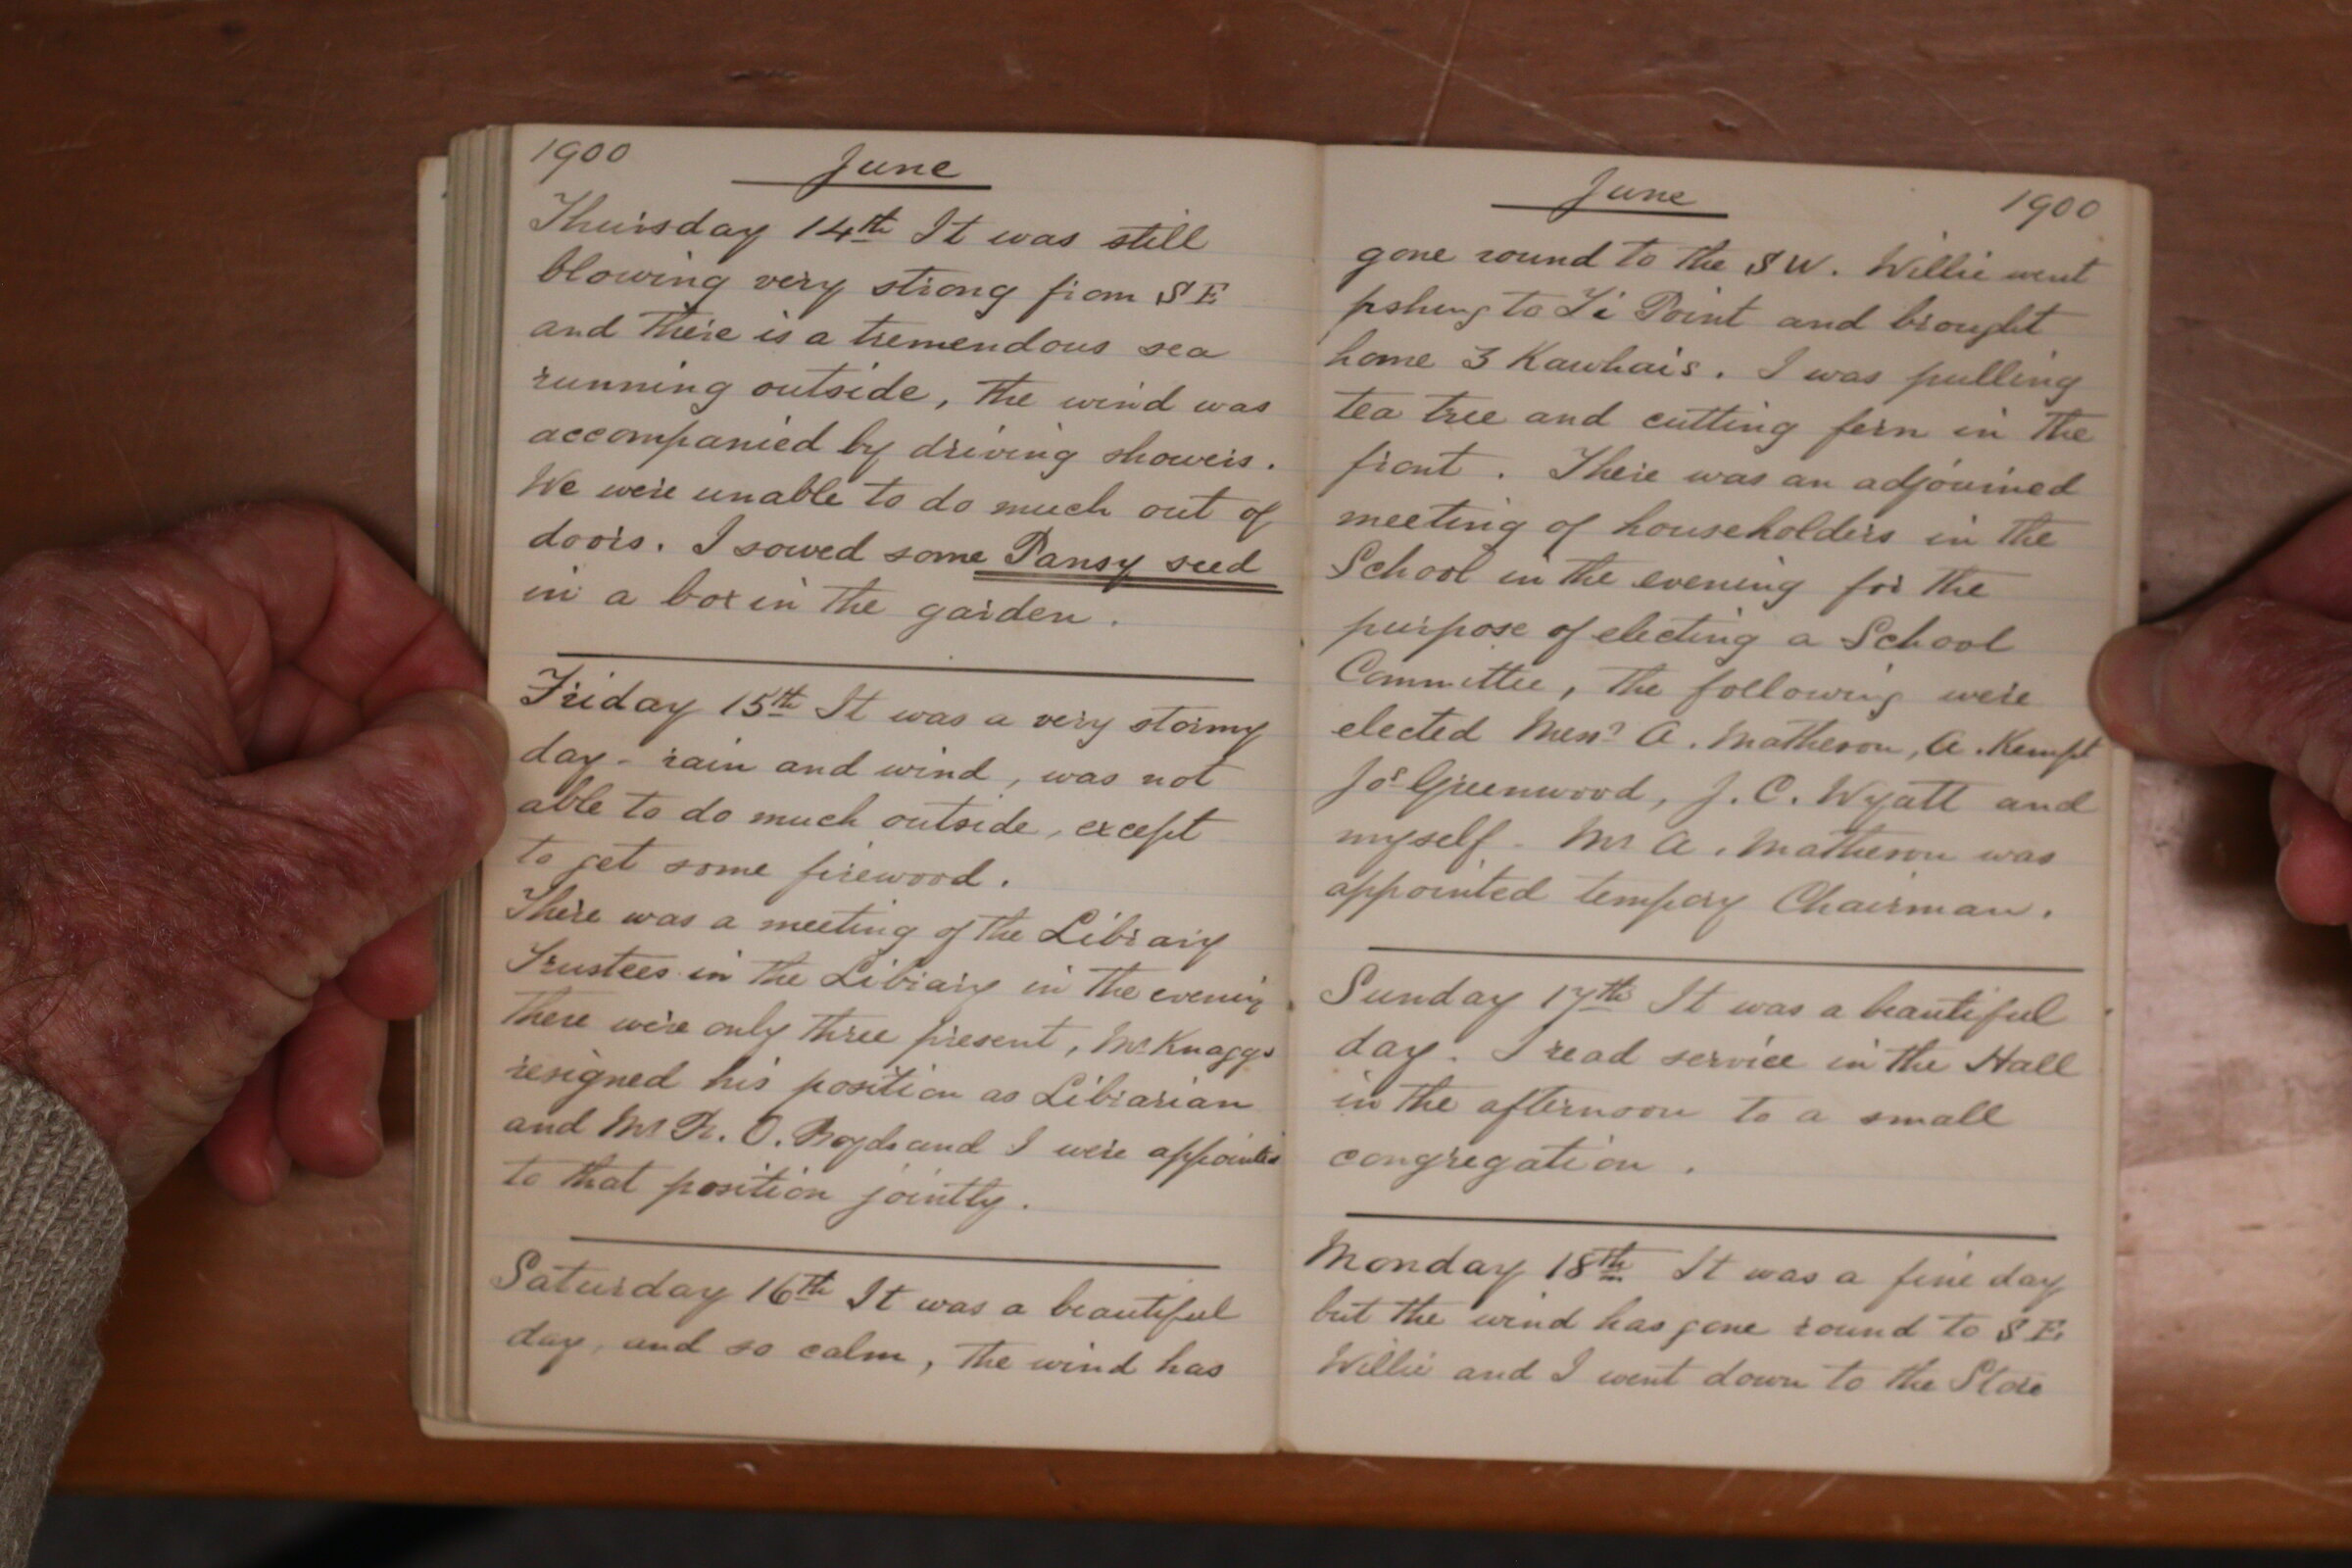 1900 June
Thursday 14th It was still
blowing very strong from S E
and there is a tremendous sea
running outside, the wind was
accompanied by driving showers.
We were unable to do much out of
doors. I sowed some Pansy seed
in a box in the garden.
Friday 15th It was a very stormy
day - rain and wind, was not
able to do much outside, except
to get some firewood.
There was a meeting of the Library
Trustees in the Library in the evening
there were only three present, Mr Knaggs
resigned his position as Librarian
and Mr R. O. Boyds and I were appointed
to that position jointly.
Saturday 16th It was a beautiful
day, and so calm, the wind has
June 1900
gone round to the S W. Willie went
fishing to Ti Point and brought
home 3 Kawhais. I was pulling
tea tree and cutting fern in the
front. There was an adjourned
meeting of householders in the
School in the evening for the
purpose of electing a School
Committee, the following were
elected Messrs A. Matheson, A. Kempt
Jos Greenwood, J. C. Wyatt and
myself - Mr A. Matheson was
appointed tempory Chairman.
Sunday 17th It was a beautiful
day. I read service in the Hall
in the afternoon to a small
congregation.
Monday 18th It was a fine day
but the wind has gone round to S E.
Willie and I went down to the Store